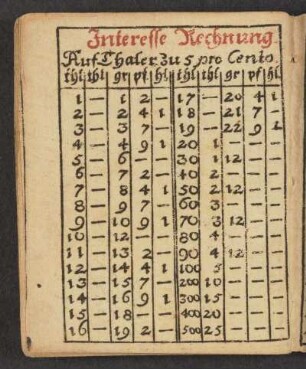 Interesse Rechnung
Auf Thaler zu 5 pro Cento.
thl thl gr pf hl thl thl gr pf hl
1 — 1 2 — 17 — 20 4 1
2 — 2 4 1 18 — 21 7 —
3 — 3 7 — 19 — 22 9 1
4 — 4 9 1 20 1 — — —
5 — 6 — — 30 1 12 — —
6 — 7 2 — 40 2 — — —
7 — 8 4 1 50 2 12 — —
8 — 9 7 — 60 3 — — —
9 — 10 9 1 70 3 12 — —
10 — 12 — — 80 4 — — —
11 — 13 2 — 90 4 12 — —
12 — 14 4 1 100 5 — — —
13 — 15 7 — 200 10 — — —
14 — 16 9 1 300 15 — — —
15 — 18 — — 400 20 — — —
16 — 19 2 — 500 25 — — —